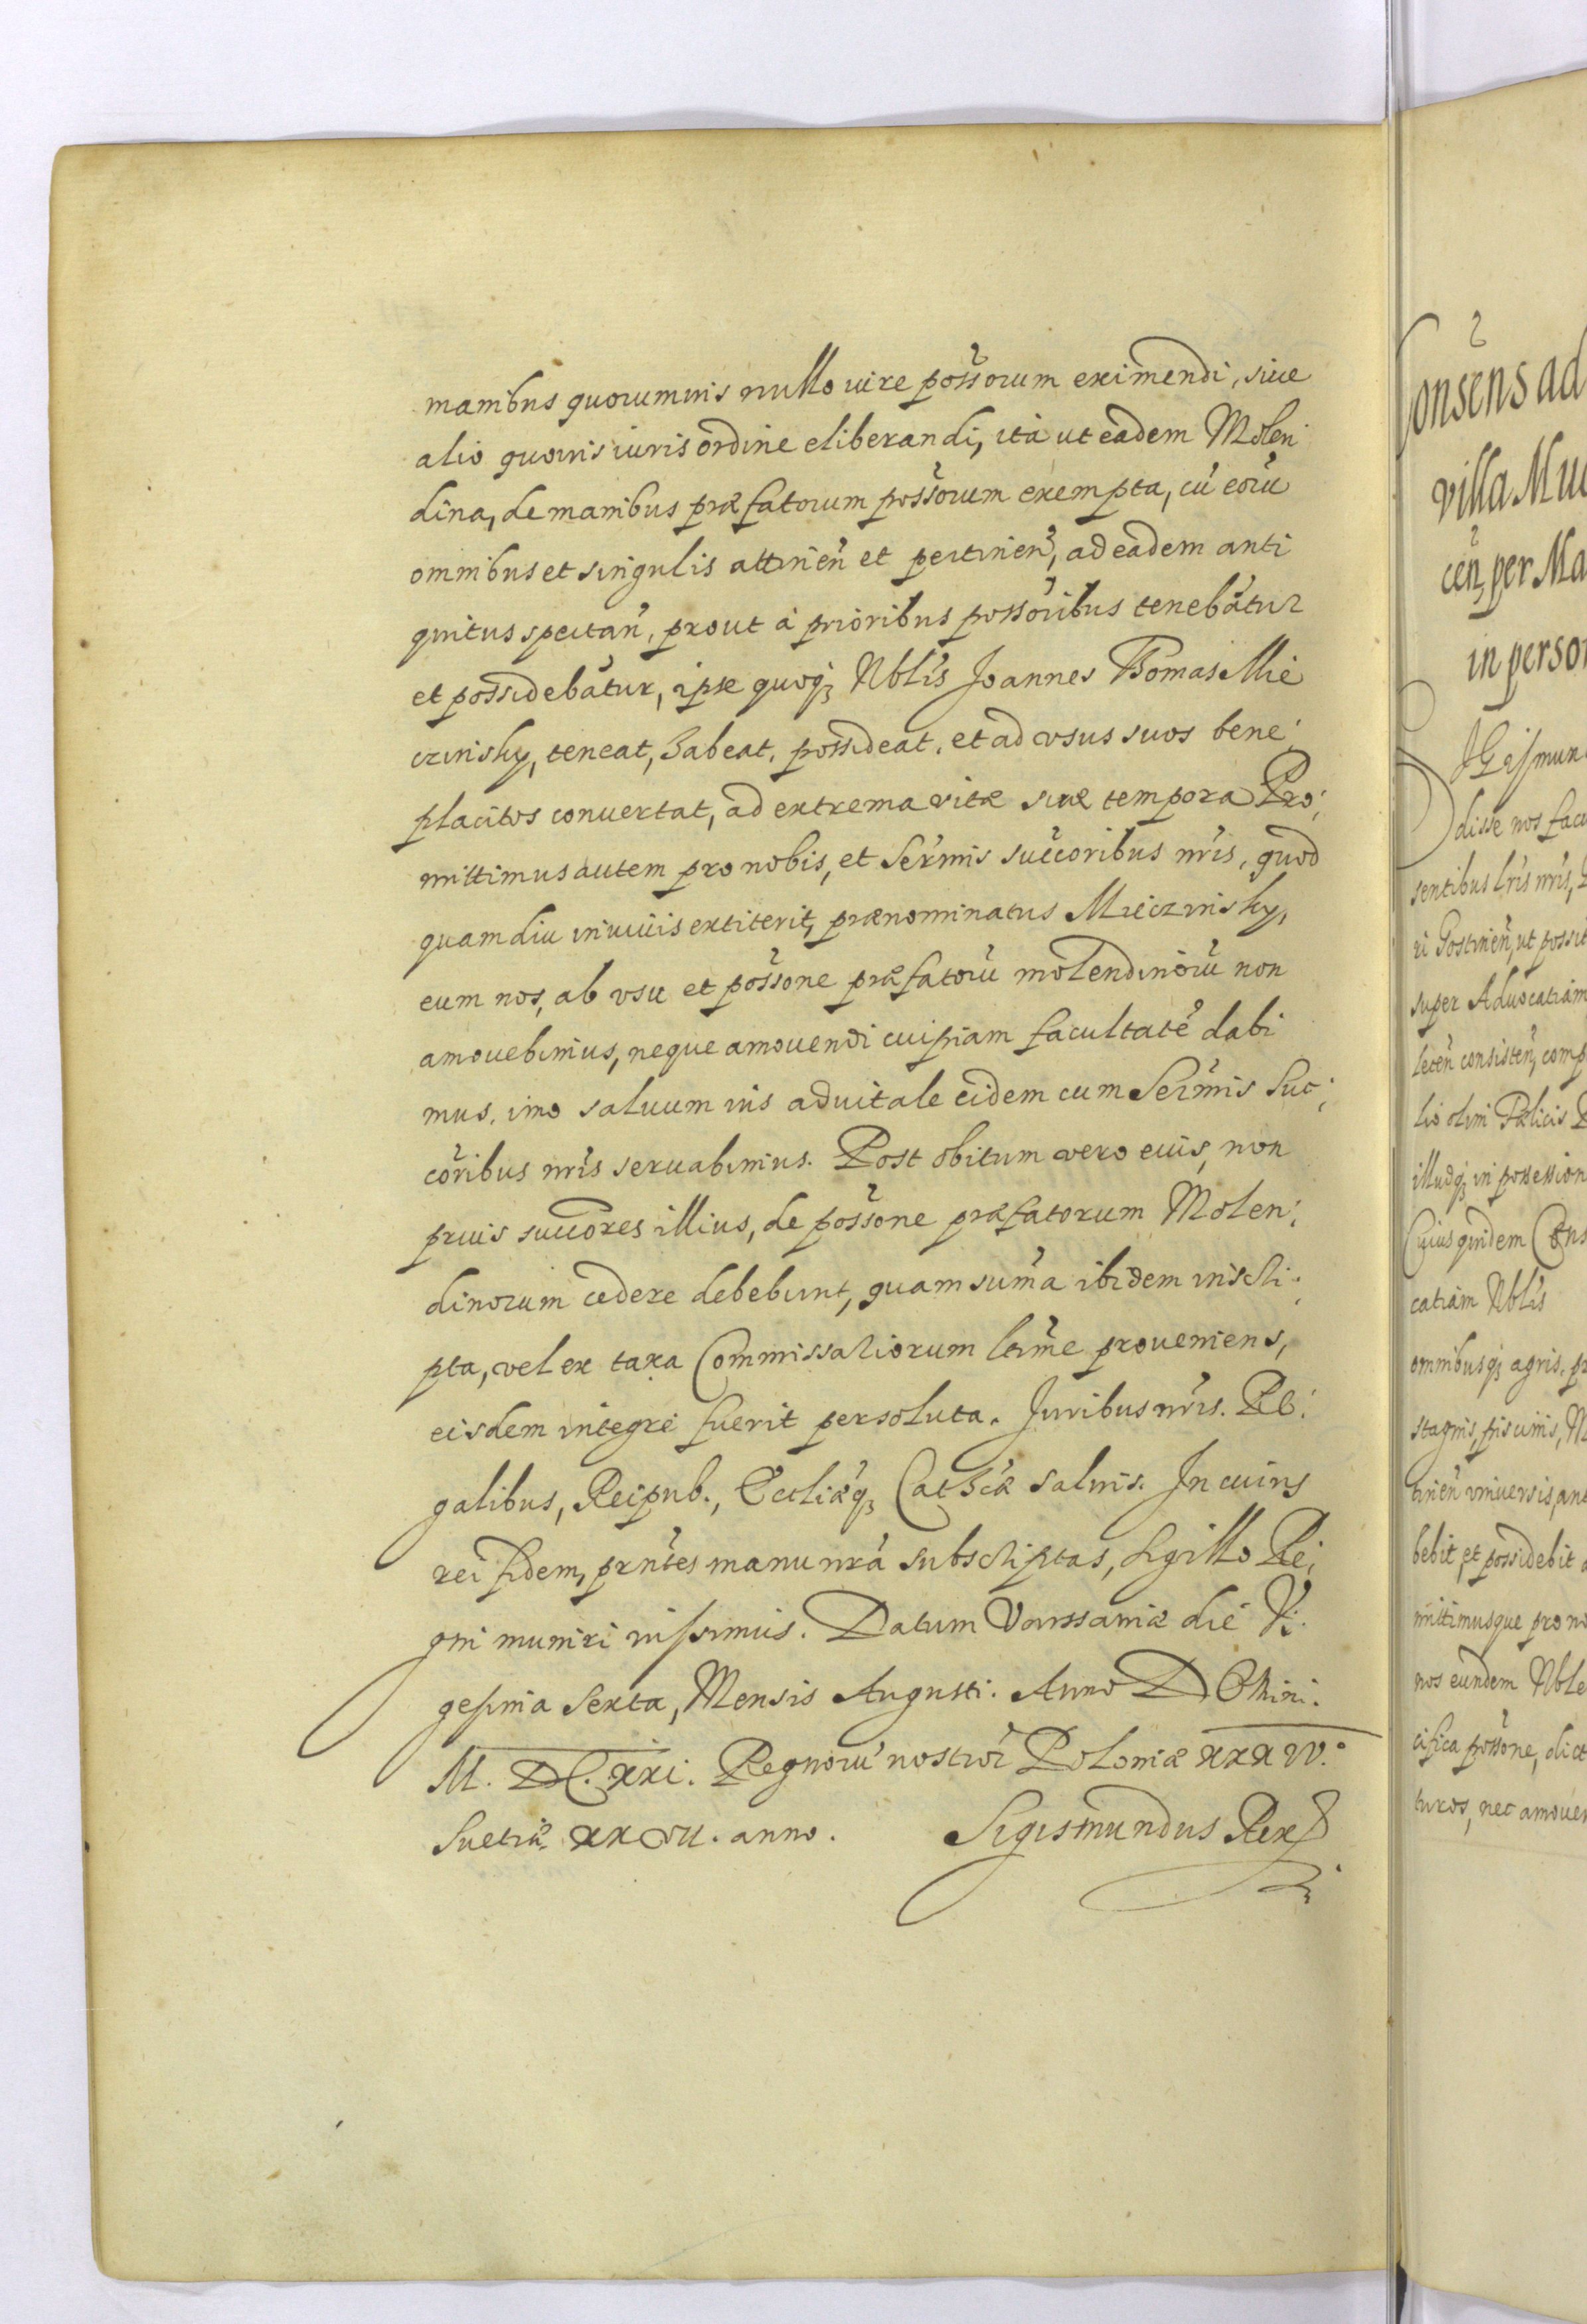 manibus quorumuis nullo iure possorum eximendi, siue
alio quouis iuris ordine eliberandi, ita ut eadem Molen
dina, de manibus præfatorum possorum exempta, cū eorū
omnibus et singulis attinen̄ et pertinen̄, ad eadem anti
quitus spectan̄, prout à prioribus possoribus tenebātur
et possidebātur, ipse quoq; Nbl̄is Joannes Thomas Mie
czinsky, teneat, habeat, possideat, et ad vsus suos bene
placitos conuertat, ad extrema vitæ suæ tempora Pro:
mittimus autem pro nobis, et Ser̄mis succoribus nr̄is, quod
quamdiu in viuis extiterit, prænominatus Mieczinsky,
eum nos, ab vsu et possone præfatorū molendinorū non
amouebimus, neque amouendi cuipiam facultatē dabi
mus, imo saluum ius aduitale eidem cum Ser̄mis Suc:
coribus nr̄is seruabimus. Post obitum vero eius, non
prius succores illius, de possone præfatorum Molen:
dinorum cedere debebunt, quam sum̄a ibidem inscri:
pta, vel ex taxa Commissariorum ltīme proueniens,
eisdem integrè fuerit persoluta. Juribus nr̄is. Re:
galibus, Reipub., Eccliæq; Cathcæ saluis. In cuius
rei fidem, prn̄tes manu nrā subscriptas, sigillo Re:
gni muniri iussimus. Datum Varssauiæ die Vi:
gesima Sexta, Mensis Augusti. Anno Domini.
M. DC. xxi. Regnorū nostror̄ Poloniæ xxxiv.
Suetiæ xxviii. anno. Sigismundus Rex
onsens ad
villa Mu
cen̄, per Ma
in perso
disse nos facu
sentibus lr̄is nr̄is,
ri Gostinen̄, ut possit
super Aduocatiam
lecen̄ consisten̄, comp
lio olim Fælicis
illudq; in possession
Cuius quidem Cons
catiam Nbl̄is
omnibusq; agris, pr
stagnis, piscinis, M
tinen̄ vniuersis, ant
bebit, et possidebit
mittimusque pro no
nos eundem Nble
cifica possone, dict
turos, nec amouen